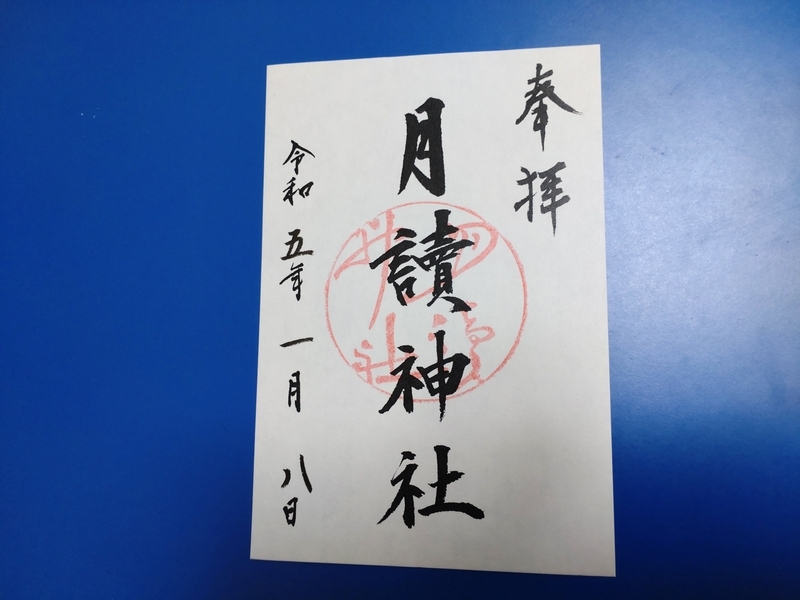 奉拝
月讀神社
令和五年一月八日